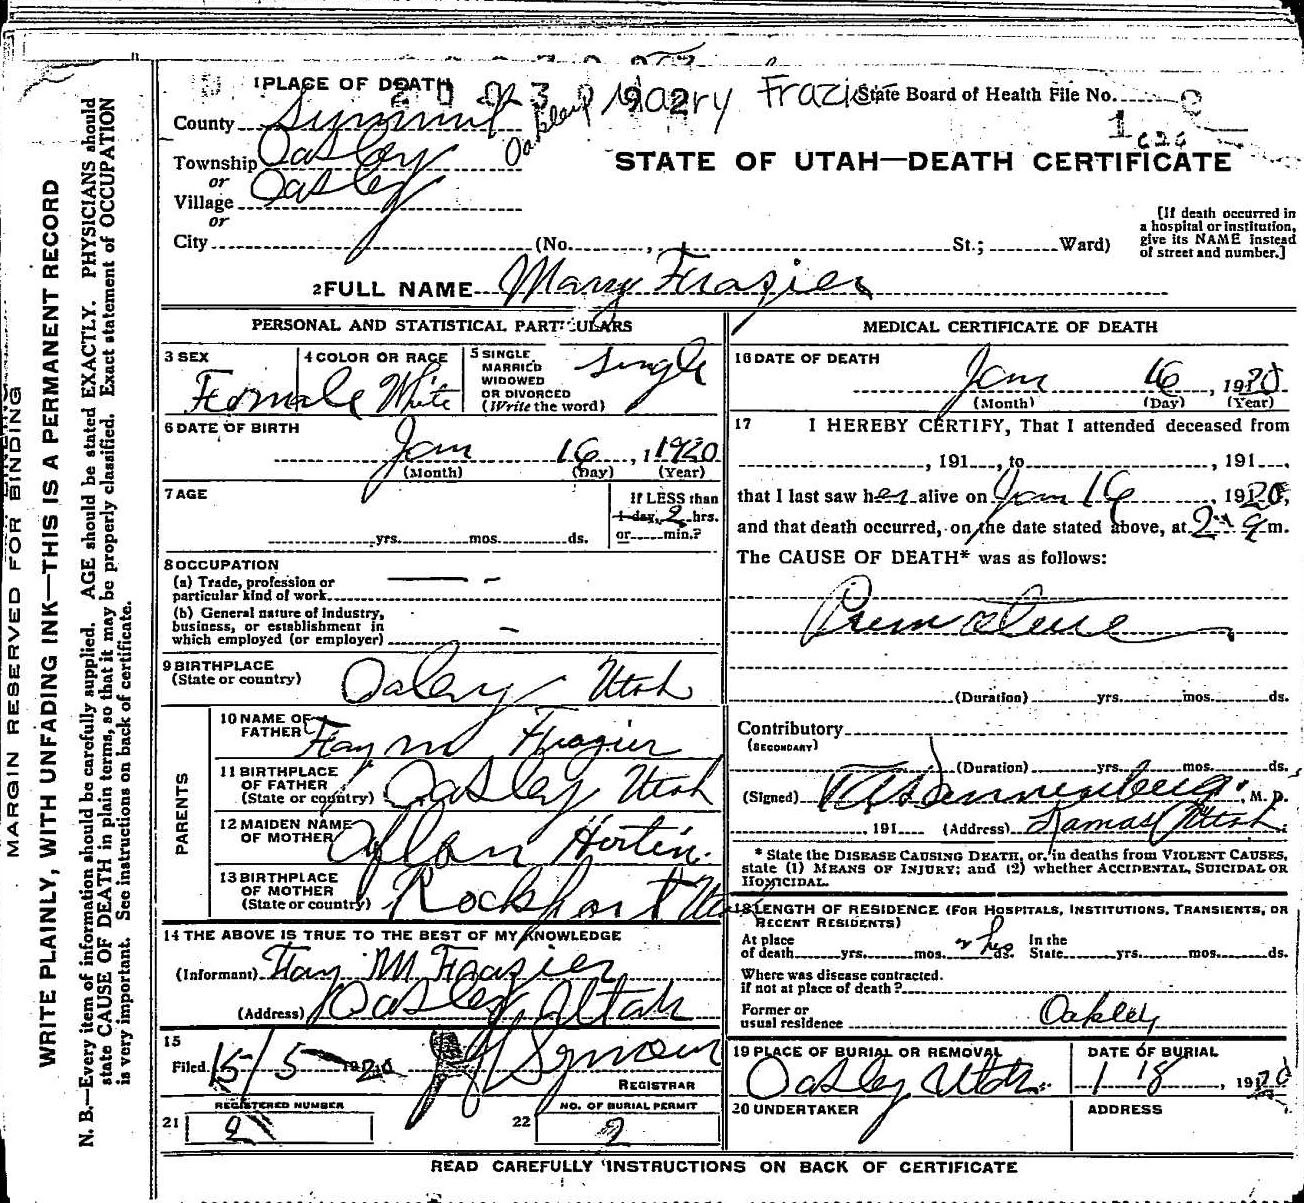 1 PLACE OF DEATH
Mary Frazier State Board of Health File No.
County Summit Oakley
Township Oakley
or
Village Oakley
or
City (No. , St.; Ward)
STATE OF UTAH—DEATH CERTIFICATE
[If death occurred in
a hospital or institution,
give its NAME instead
of street and number.]
2 FULL NAME Mary Frazier
PERSONAL AND STATISTICAL PARTICULARS
3 SEX
Female
4 COLOR OR RACE
White
5 SINGLE
MARRIED
WIDOWED
OR DIVORCED
(Write the word)
Single
6 DATE OF BIRTH
Jan 16, 1920
(Month) (Day) (Year)
7 AGE
yrs. mos. ds.
If LESS than
1 day, 2 hrs.
or min.?
8 OCCUPATION
(a) Trade, profession or
particular kind of work
(b) General nature of industry,
business, or establishment in
which employed (or employer)
9 BIRTHPLACE
(State or country)
Oakley Utah
PARENTS
10 NAME OF
FATHER
Fay M Frazier
11 BIRTHPLACE
OF FATHER
(State or country)
Oakley Utah
12 MAIDEN NAME
OF MOTHER
13 BIRTHPLACE
OF MOTHER
(State or country)
Rockport
14 THE ABOVE IS TRUE TO THE BEST OF MY KNOWLEDGE
(Informant) Fay M Frazier
(Address) Oakley Utah
15
Filed 1920
REGISTRAR
REGISTERED NUMBER
21 2
NO. OF BURIAL PERMIT
22 2
MEDICAL CERTIFICATE OF DEATH
16 DATE OF DEATH
Jan 16, 1920
(Month) (Day) (Year)
17 I HEREBY CERTIFY, That I attended deceased from
, 191 , to , 191 ,
that I last saw her alive on Jan 16, 1920,
and that death occurred, on the date stated above, at 2 m.
The CAUSE OF DEATH* was as follows:
Premature
(Duration) yrs. mos. ds.
Contributory
(SECONDARY)
(Duration) yrs. mos. ds.
(Signed) , M. D.
, 191 (Address) Kamas Utah
* State the DISEASE CAUSING DEATH, or, in deaths from VIOLENT CAUSES,
state (1) MEANS OF INJURY; and (2) whether ACCIDENTAL, SUICIDAL OR
HOMICIDAL.
18 LENGTH OF RESIDENCE (FOR HOSPITALS, INSTITUTIONS, TRANSIENTS, OR
RECENT RESIDENTS)
At place In the
of death yrs. mos. 2 hrs ds. State yrs. mos. ds.
Where was disease contracted.
if not at place of death?
Former or
usual residence Oakley
19 PLACE OF BURIAL OR REMOVAL
Oakley Utah
DATE OF BURIAL
1 18, 1920
20 UNDERTAKER
ADDRESS
READ CAREFULLY INSTRUCTIONS ON BACK OF CERTIFICATE
MARGIN RESERVED FOR BINDING
WRITE PLAINLY, WITH UNFADING INK—THIS IS A PERMANENT RECORD
N. B.—Every item of information should be carefully supplied. AGE should be stated EXACTLY. PHYSICIANS should
state CAUSE OF DEATH in plain terms, so that it may be properly classified. Exact statement of OCCUPATION
is very important. See instructions on back of certificate.